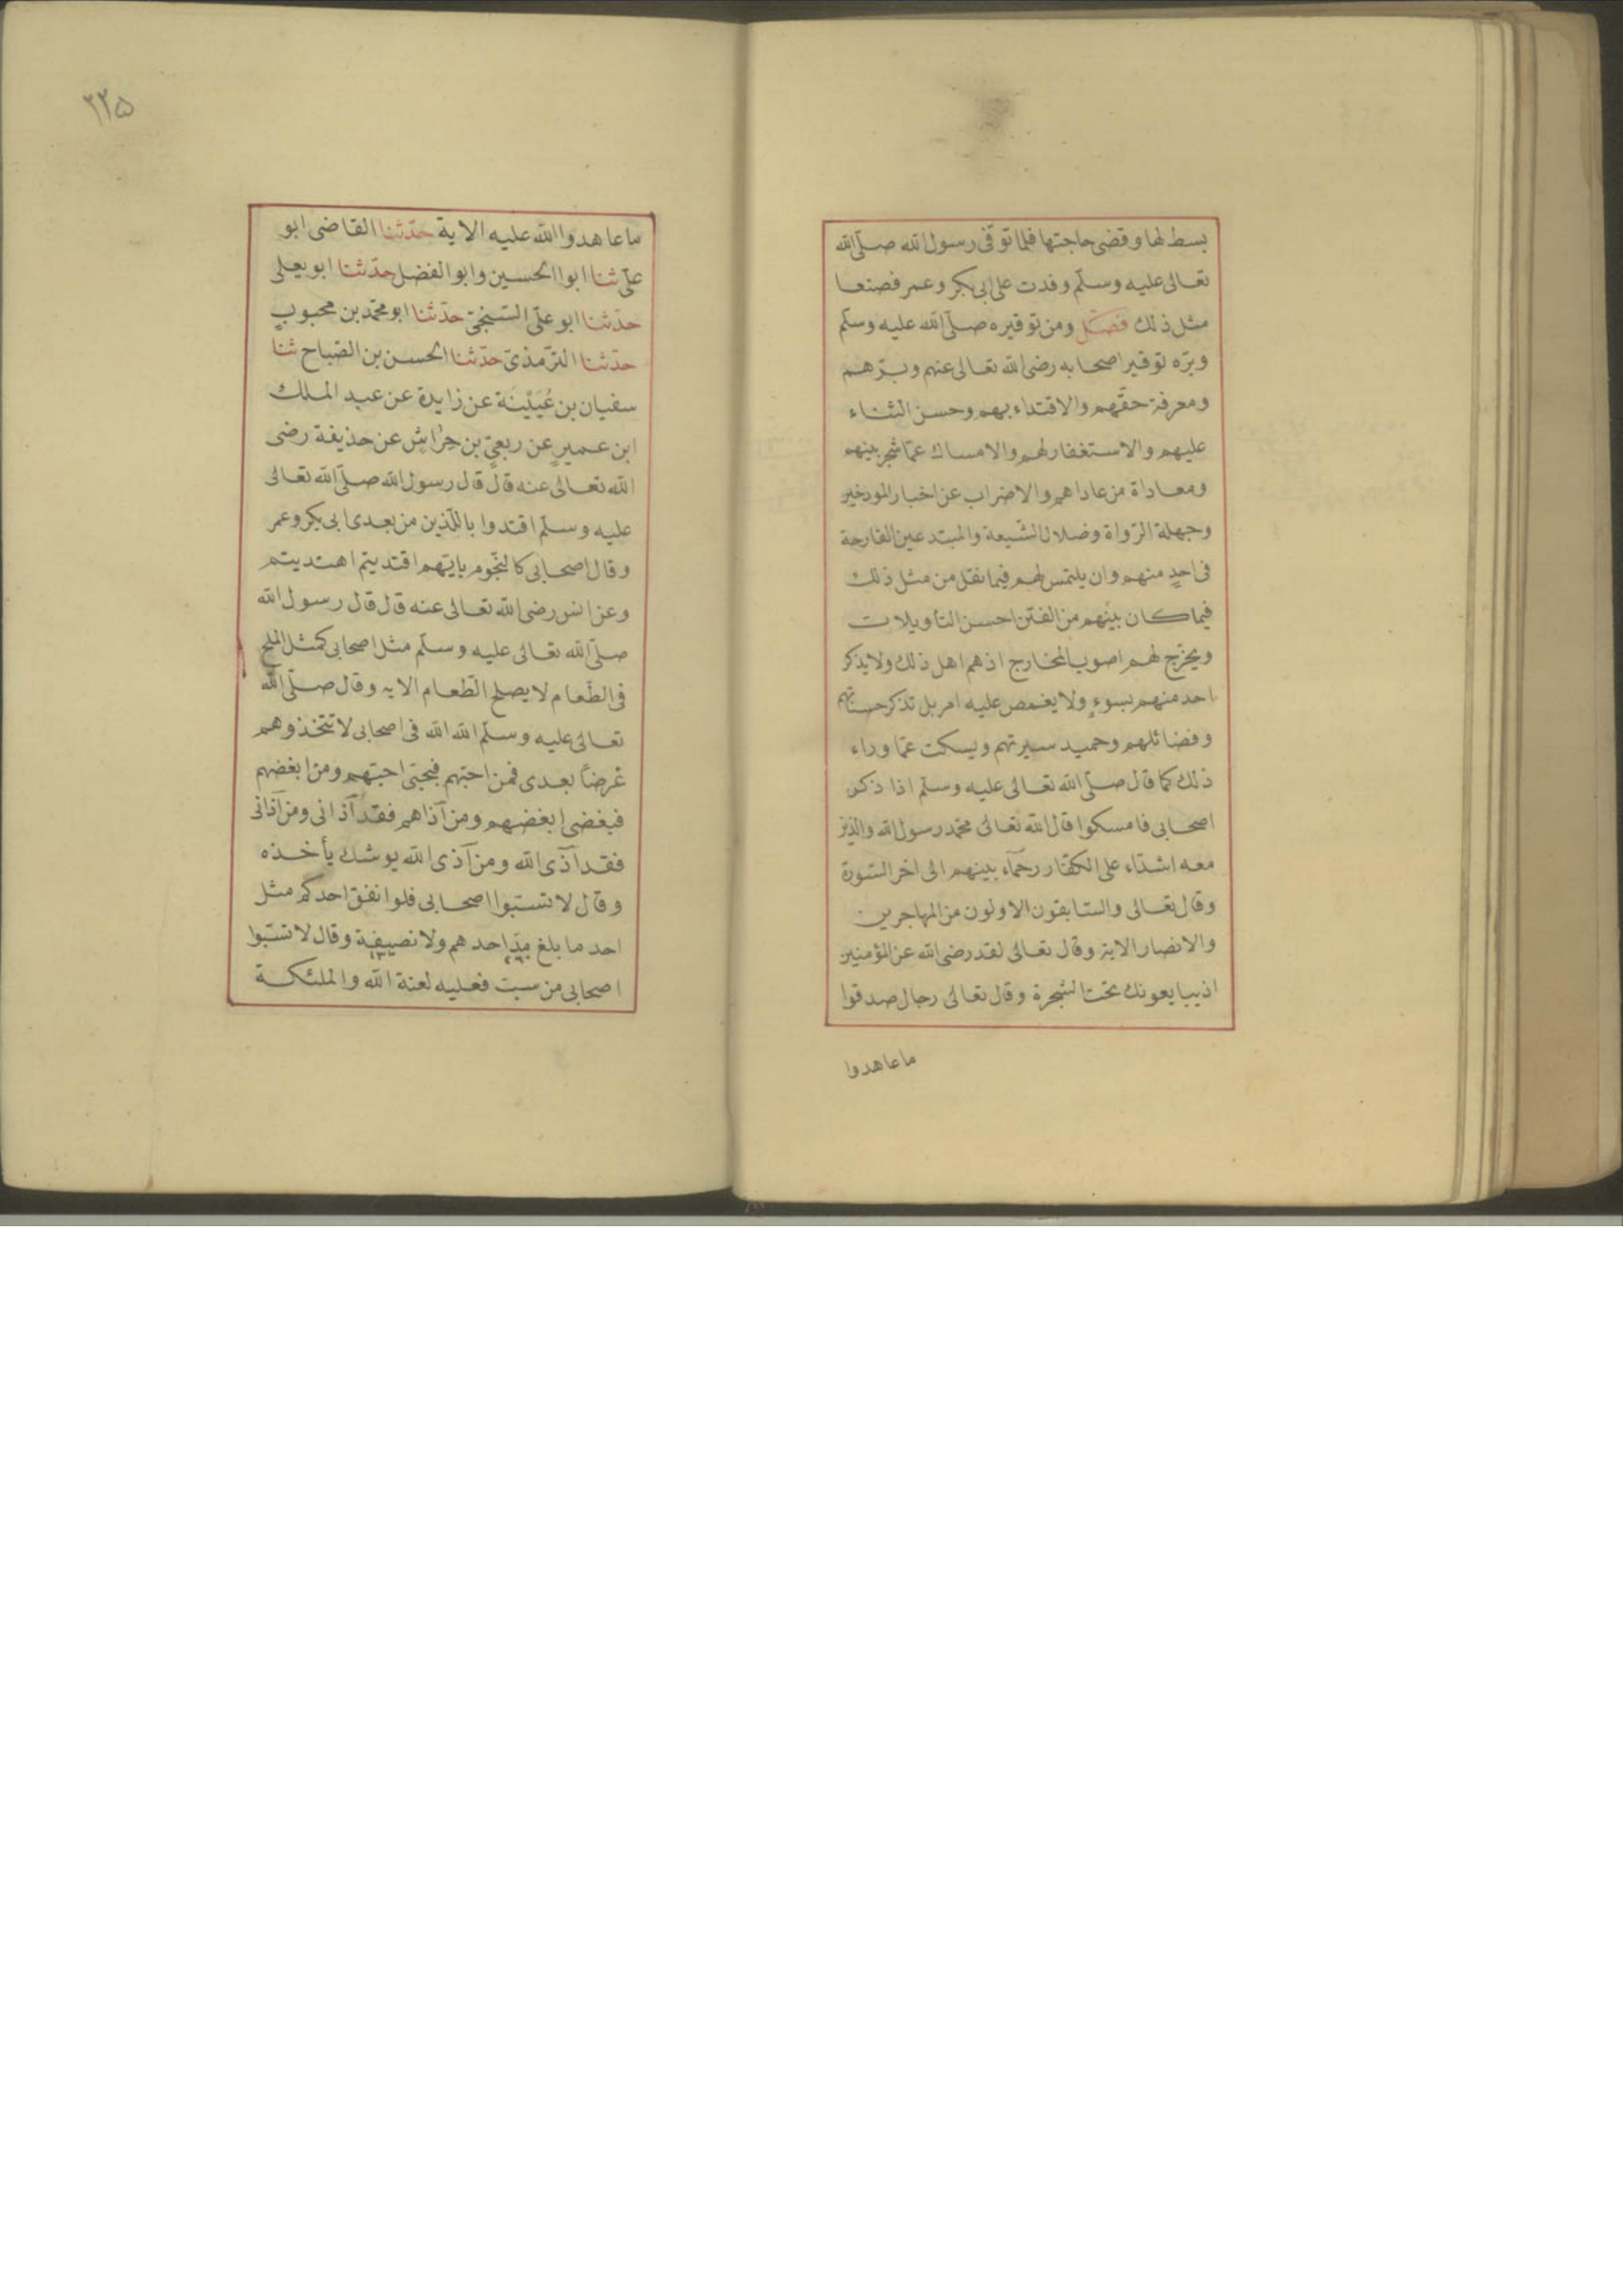 بسط لها وقضى حاجتها فلما توفى رسول الله صلّى الله
تعالى عليه وسلّم وفدت على ابى بكر وعمر فصنعا
مثل ذلك فصل ومن توقيره صلّى الله عليه وسلّم
وبرّه توقير اصحابه رضى الله تعالى عنهم وبرّهم
ومعرفة حقّهم والاقتداء بهم وحسن الثناء
عليهم والاستغفار لهم والامساك عمّا شجر بينهم
ومعاداة من عاداهم والاضراب عن اخبار المورخين
وجهلة الرّواة وضلال الشّيعة والمبتدعين القارحة
فى احدٍ منهم وان يلتمس لهم فيما نقل من مثل ذلك
فيما كان بينهم من الفتن احسن التأويلات
ويخرّج لهم اصوب المخارج اذ هم اهل ذلك ولا يذكر
احد منهم بسوءٍ ولا يغمص عليه امر بل تذكر حسناتهم
وفضائلهم وحميد سيرتهم ويسكت عمّا وراء
ذلك كما قال صلّى الله تعالى عليه وسلّم اذا ذكر
اصحابى فامسكوا قال الله تعالى محمّد رسول الله والذين
معه اشدّاء على الكفّار رحمآء بينهم الى اخر السّورة
وقال تعالى والسّابقون الاولون من المهاجرين
والانصار الاية وقال تعالى لقد رضى الله عن المؤمنين
اذ يبايعونك تحت الشجرة وقال تعالى رجال صدقوا
ما عاهدوا
٢٢٥
ما عاهدوا الله عليه الاية حدّثنا القاضى ابو
علىّ ثنا ابوا الحسين وابو الفضل حدّثنا ابو يعلى
حدّثنا ابو علىّ السّنجىّ حدّثنا ابو محمّد بن محبوبٍ
حدّثنا التّرمذىّ حدّثنا الحسن بن الصّباح ثنا
سفيان بن عُيَيْنَة عن زايدة عن عبد الملك
ابن عميرٍ عن ربعىّ بن حِرَاشٍ عن حذيفة رضى
الله تعالى عنه قال قال رسول الله صلّى الله تعالى
عليه وسلّم اقتدوا باللّذين من بعدى ابى بكر وعمر
وقال اصحابى كالنّجوم بايّهم اقتديتم اهتديتم
وعن انس رضى الله تعالى عنه قال قال رسول الله
صلّى الله تعالى عليه وسلّم مثل اصحابى كمثل الملح
فى الطّعام لا يصلح الطّعام الا به وقال صلّى الله
تعالى عليه وسلّم الله الله فى اصحابى لا تتّخذوهم
غرضًا بعدى فمن احبّهم فبحبّى احبّهم ومن ابغضهم
فببغضى ابغضهم ومن آذاهم فقد آذانى ومن آذانى
فقد آذى الله ومن آذى الله يوشك يأخذه
وقال لا تسبّوا اصحابى فلو انفق احدكم مثل
احد ما بلغ مدّ احدهم ولا نصيفة وقال لا تسّبوا
اصحابى من سبّ فعليه لعنة الله والملئكة